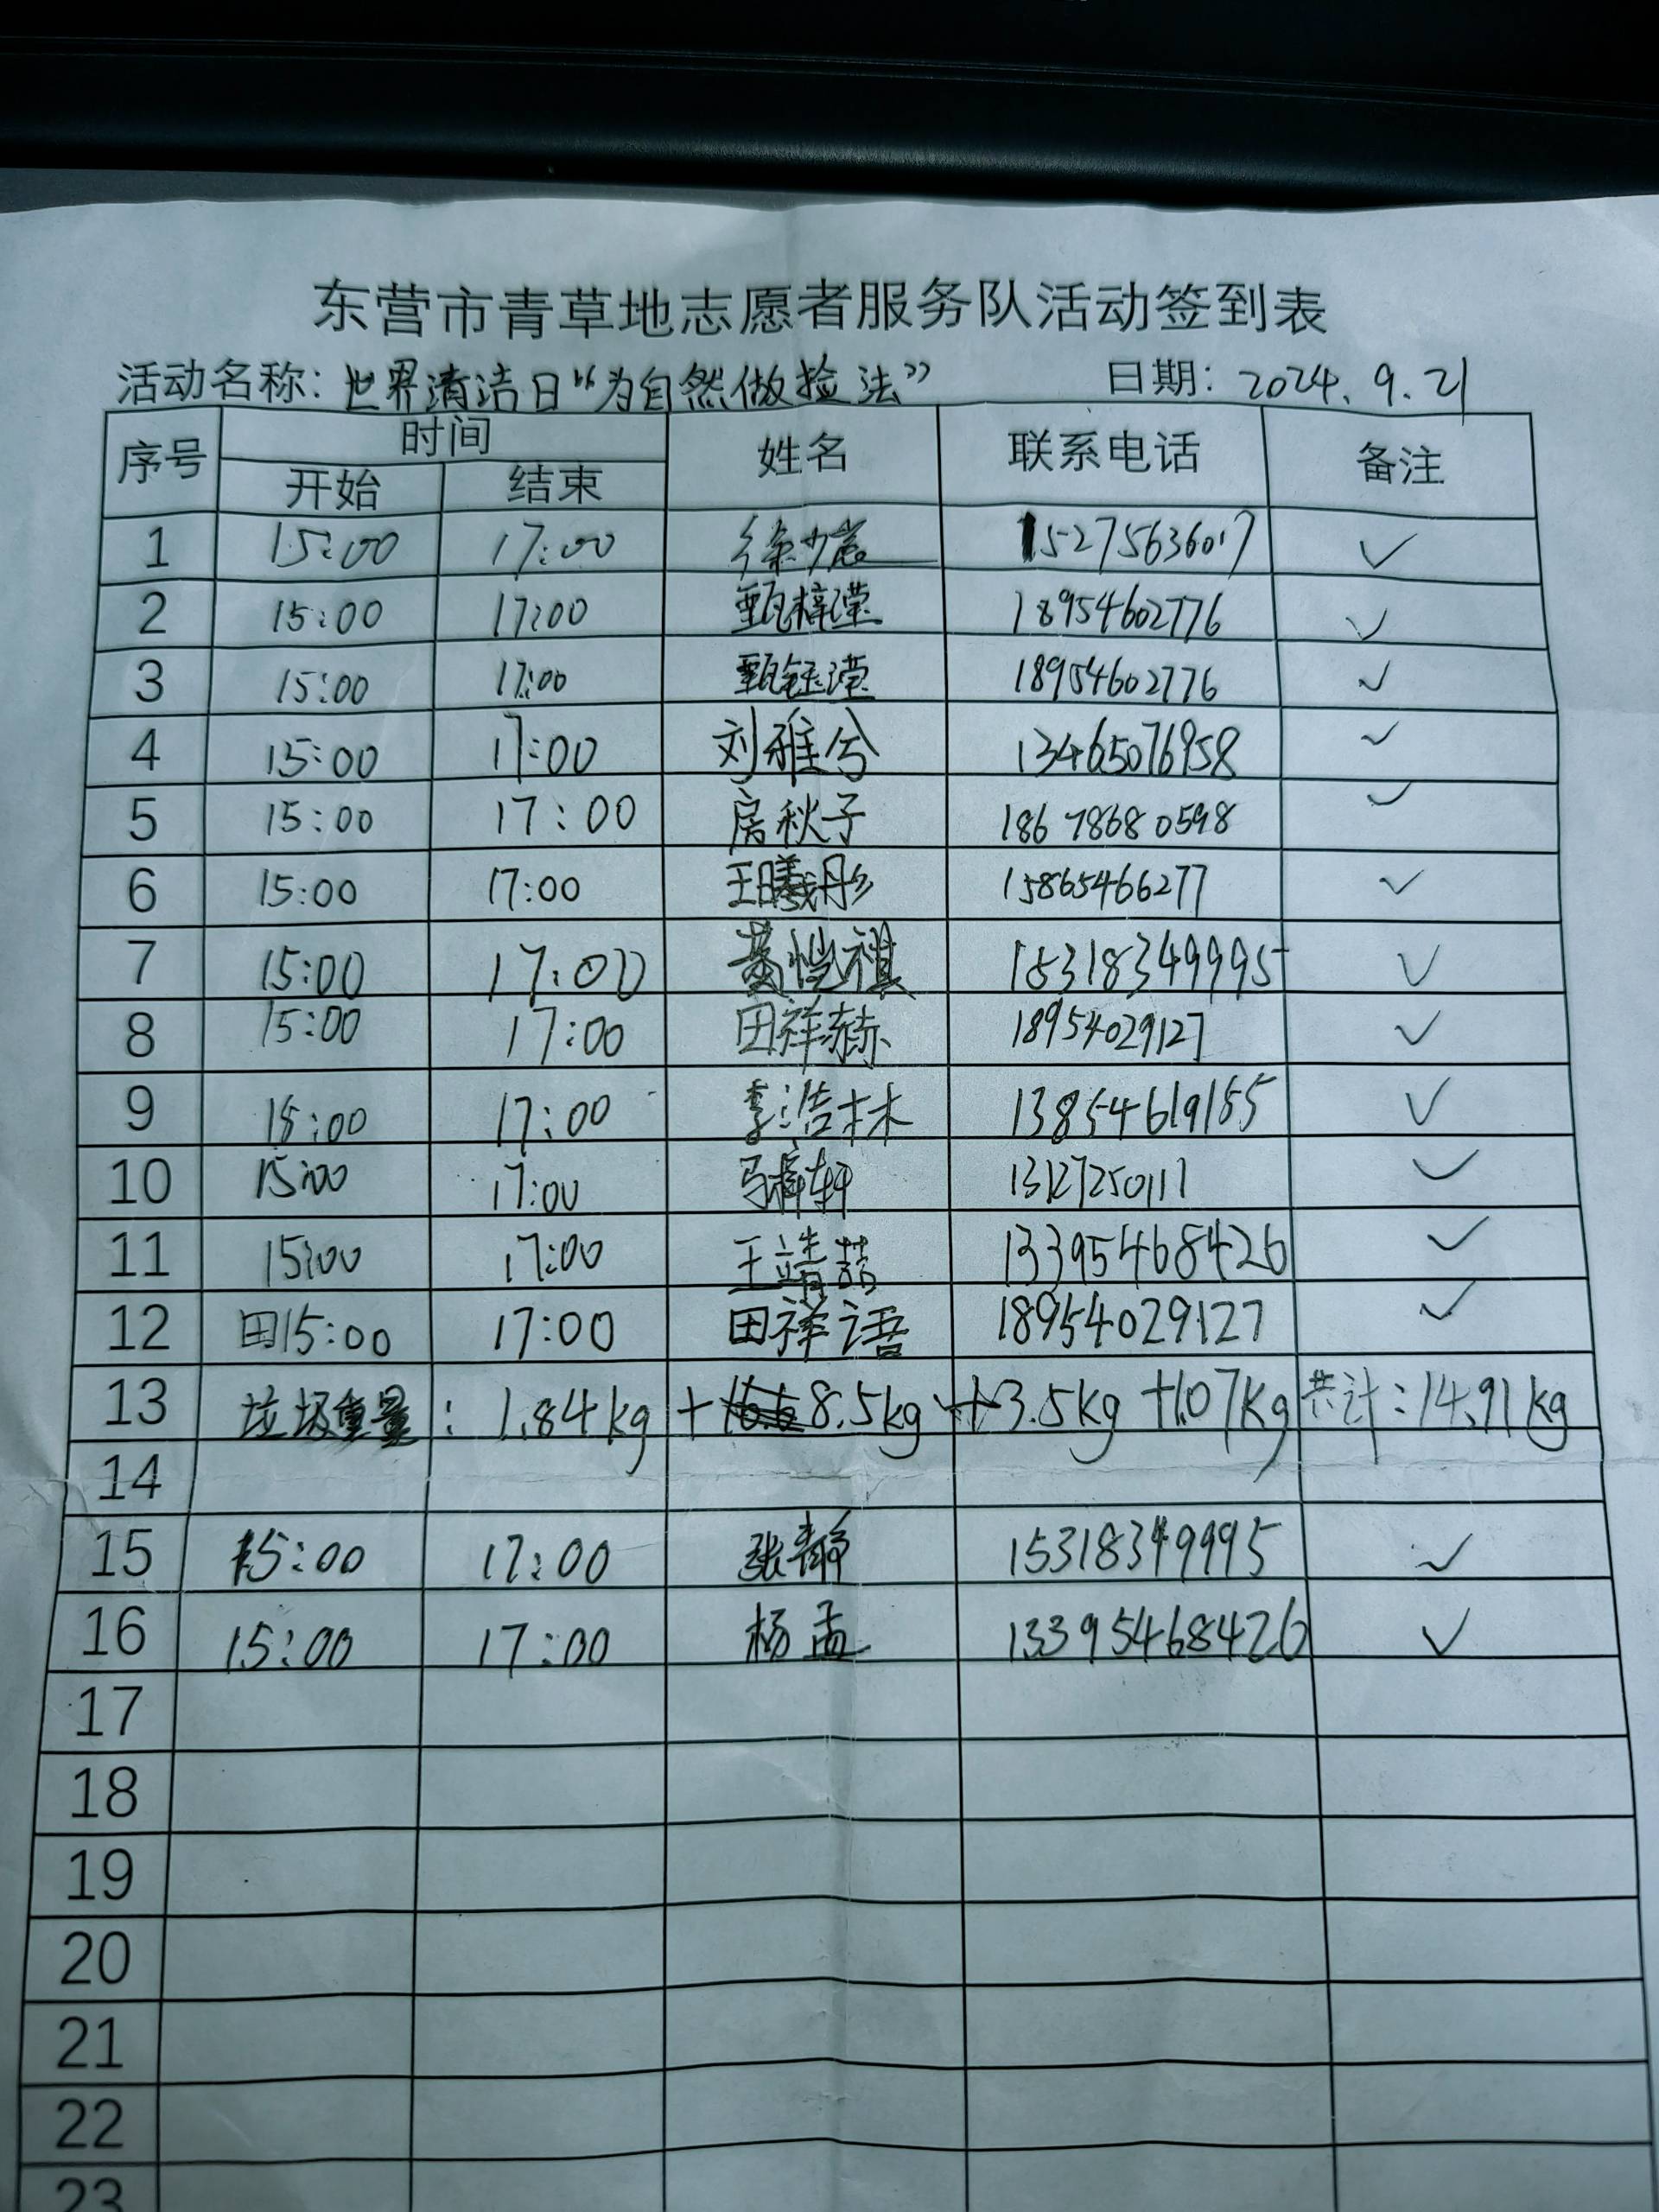 东营市青草地志愿者服务队活动签到表
活动名称：世界清洁日“为自然做捡法” 日期：2024.9.21
序号 时间 姓名 联系电话 备注
开始 结束
1 15:00 17:00 徐 15275636017 ✓
2 15:00 17:00 甄梓滢 18954602776 ✓
3 15:00 17:00 甄钰滢 18954602776 ✓
4 15:00 17:00 刘雅兮 13465076958 ✓
5 15:00 17:00 房秋子 18678680598 ✓
6 15:00 17:00 王曦彤 15865466277 ✓
7 15:00 17:00 黄恺祺 15318349995 ✓
8 15:00 17:00 田祥赫 18954029127 ✓
9 15:00 17:00 李浩林 13854619155 ✓
10 15:00 17:00 马梓轩 13127250111 ✓
11 15:00 17:00 王靖喆 13395468426 ✓
12 田15:00 17:00 田祥语 18954029127 ✓
13 垃圾重量：1.84kg + 8.5kg + 3.5kg + 1.07kg 共计：14.91kg
14
15 15:00 17:00 张静 15318349995 ✓
16 15:00 17:00 杨孟 13395468426 ✓
17
18
19
20
21
22
23